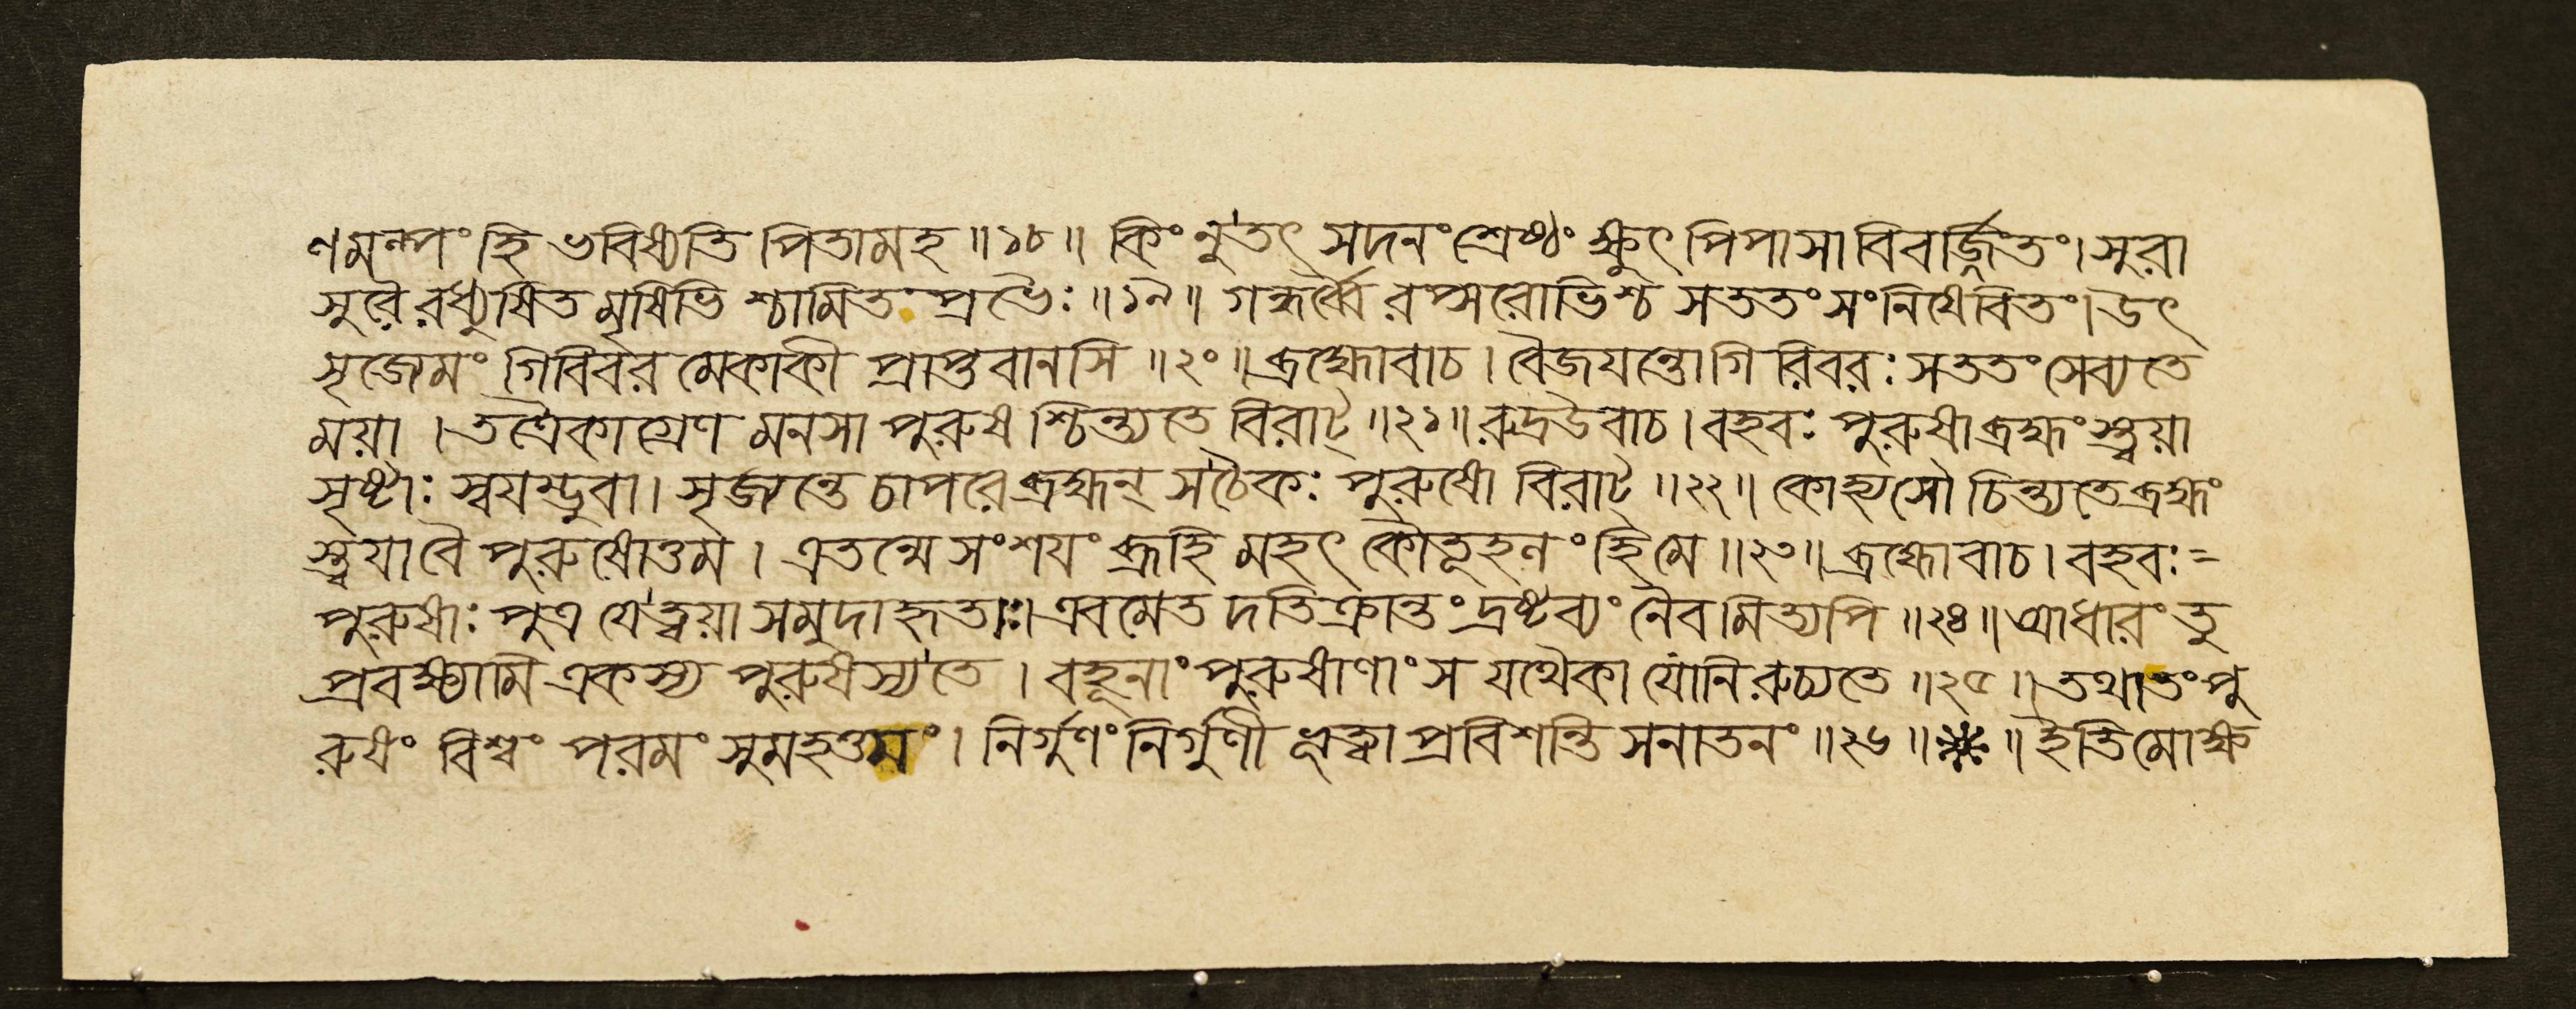 ণমল্পং হি ভবিষ্যতি পিতামহ ॥১৮॥ কিং নু তৎ সদনং শ্রেষ্ঠং ক্ষুৎ পিপাসা বিবর্জ্জিতং। সুরা
সুরৈ রধ্যুষিত মৃষিভি শ্চামিত প্রভৈঃ ॥১৯॥ গন্ধর্ব্বৈ রপ্সরোভিশ্চ সততং সংনিষেবিতং। উৎ
সৃজেমং গিরিবর মেকাকী প্রাপ্তবানসি ॥২০॥ ব্রহ্মোবাচ। বৈজয়ন্তোগি রিবরঃ সততং সেব্যতে
ময়া । তত্রৈকাগ্রেণ মনসা পুরুষ শ্চিন্ত্যতে বিরাট্ ॥২১॥ রুদ্রউবাচ। বহবঃ পুরুষাব্রহ্মং স্ত্বয়া
সৃষ্টাঃ স্বয়ম্ভুবা। সৃজ্যন্তে চাপরে ব্রহ্মন্ সচৈকঃ পুরুষো বিরাট্ ॥২২॥ কোহ্যসৌ চিন্ত্যতে ব্রহ্মং
স্ত্বয়া বৈ পুরুষোত্তম । এতন্মে সংশয়ং ব্রূহি মহৎ কৌতূহলং হি মে ॥২৩॥ ব্রহ্মোবাচ। বহবঃ=
পুরুষাঃ পুত্র যে ত্বয়া সমুদাহৃতাঃ। এবমেত দতিক্রান্তং দ্রষ্টব্যং নৈবমিত্যপি ॥২৪॥ আধারং তু
প্রবক্ষ্যামি একস্য পুরুষস্য তে । বহূনাং পুরুষাণাং স যথৈকা যোনিরুচ্যতে ॥২৫॥ তথাতং পু
রুষং বিশ্বং পরমং সুমহত্তমং। নির্গুণং নির্গুণী ভূত্বা প্রবিশন্তি সনাতনং ॥২৬॥ ※ ॥ ইতি মোক্ষ